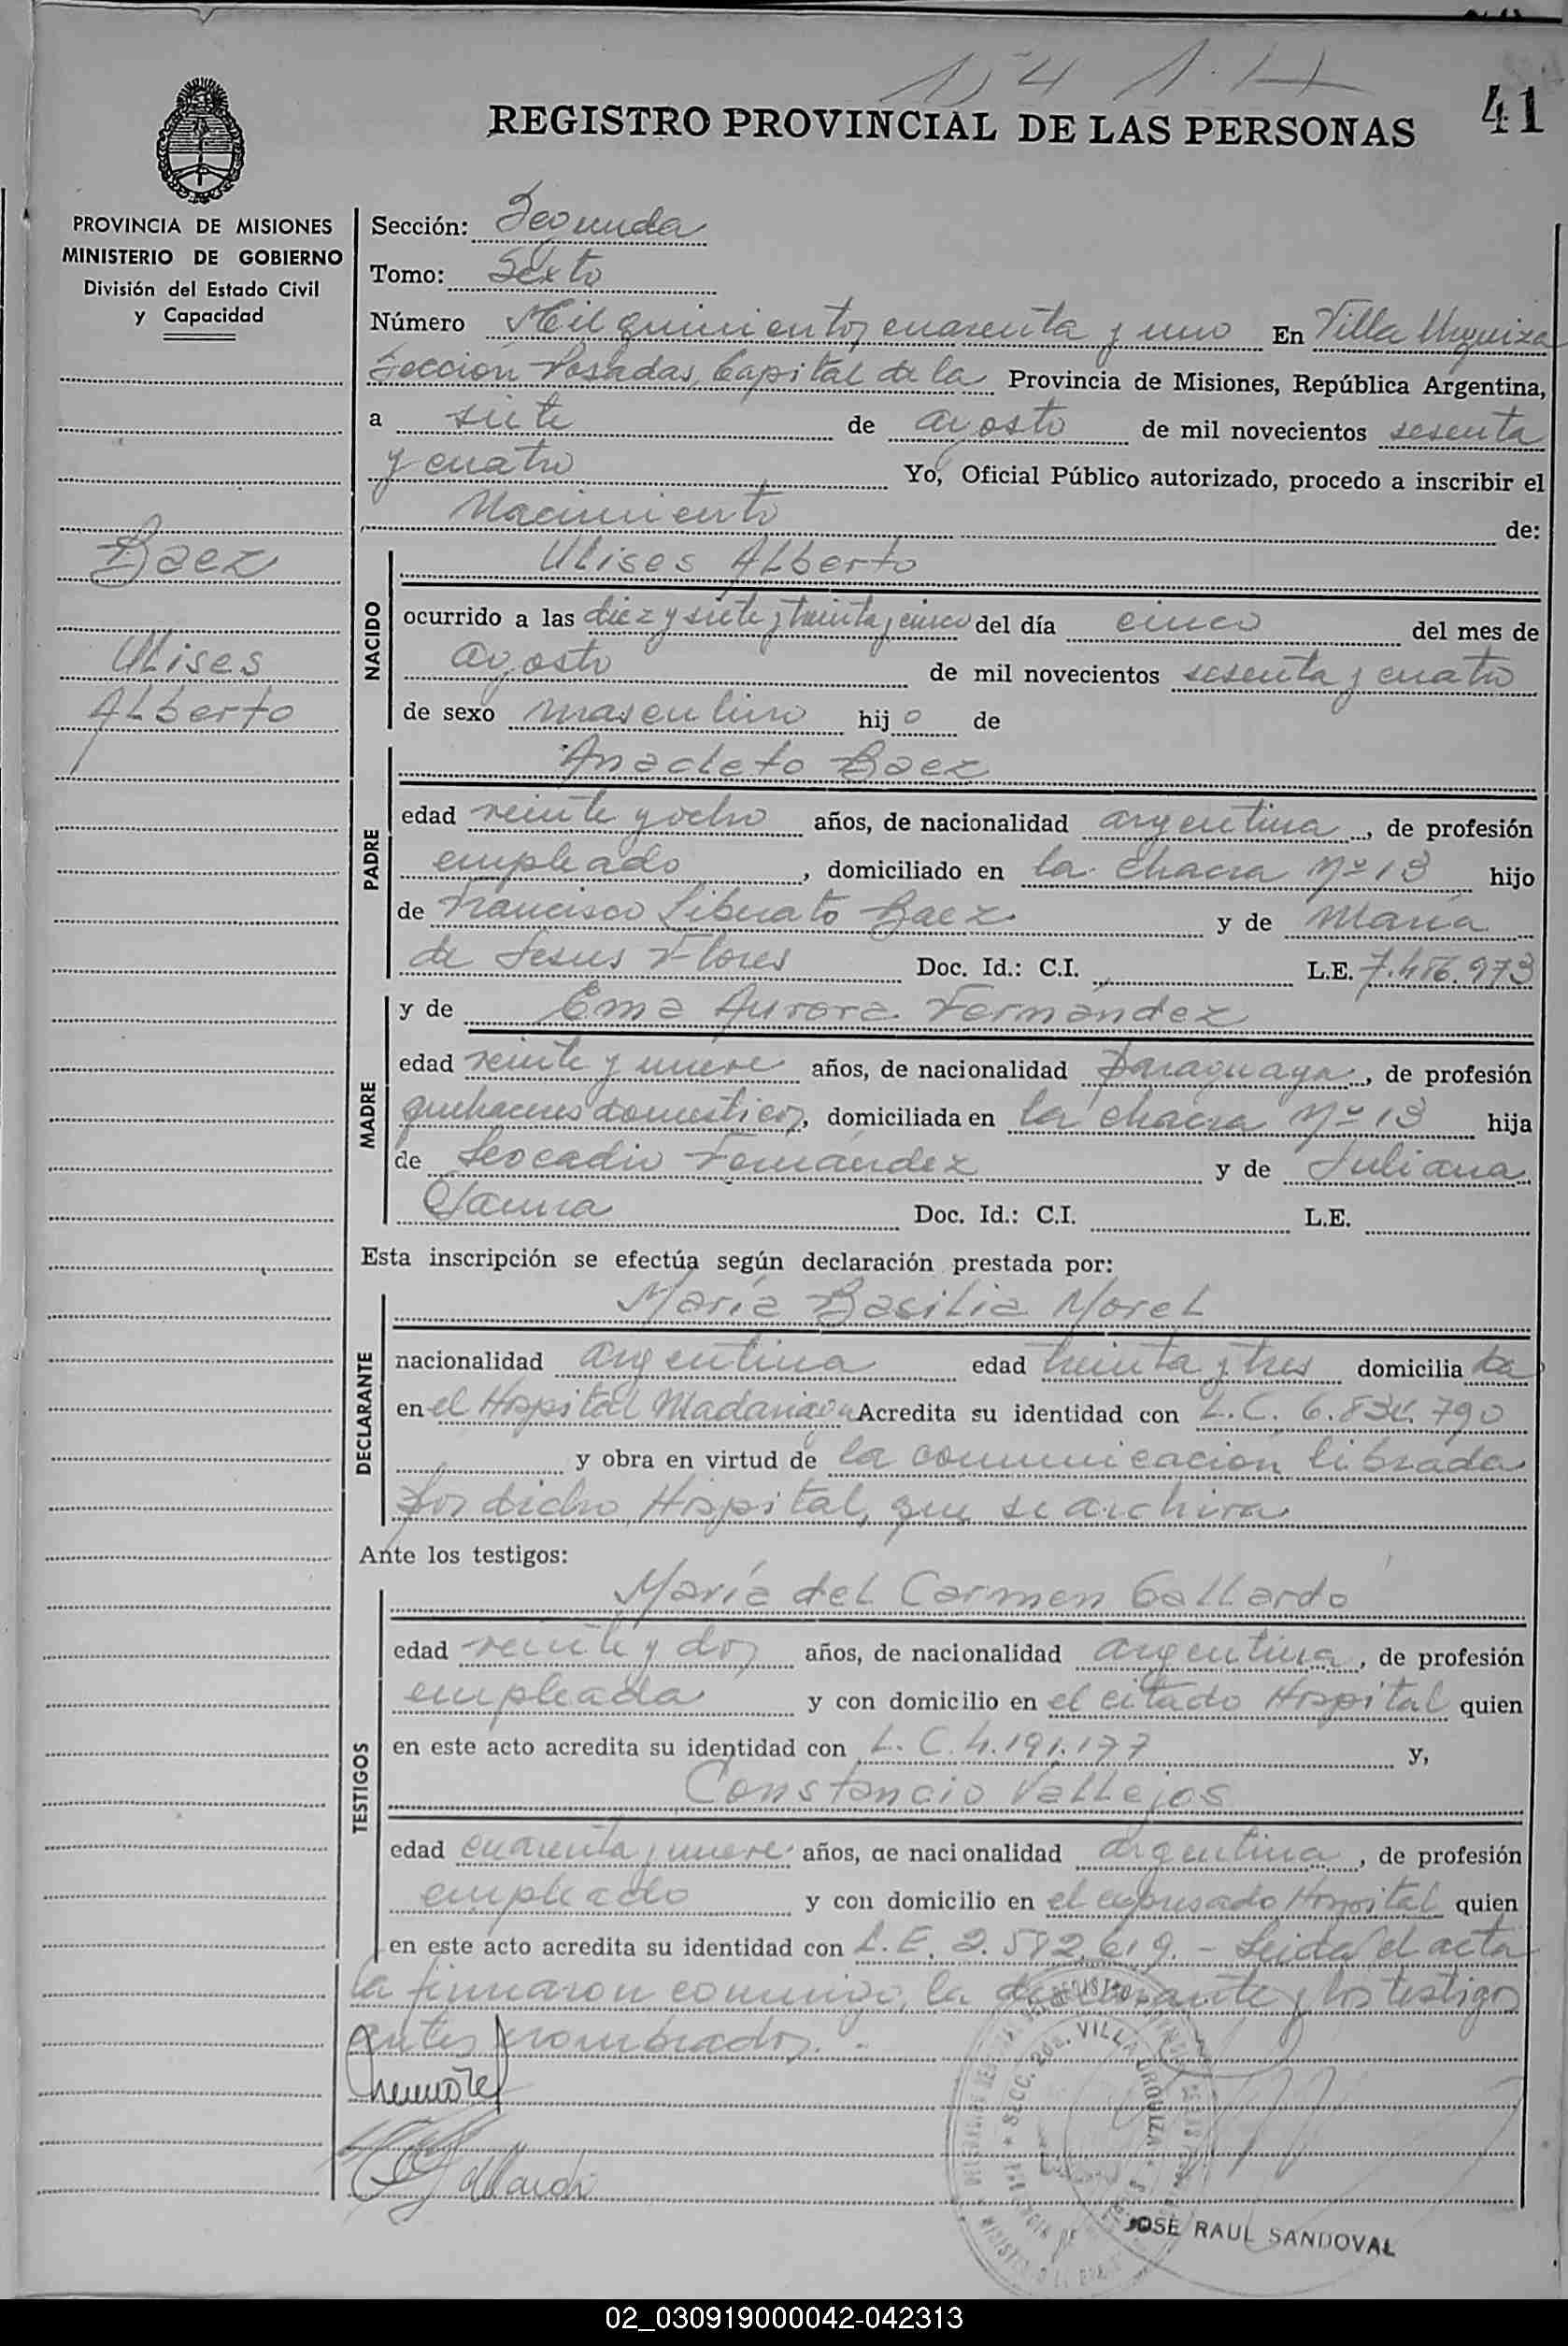 1541.H
41
REGISTRO PROVINCIAL DE LAS PERSONAS
PROVINCIA DE MISIONES
MINISTERIO DE GOBIERNO
División del Estado Civil
y Capacidad
Baez
Ulises
Alberto
Sección: Segunda
Tomo: Sexto
Número Mil quinientos cuarenta y uno En Villa Urquiza
Sección Posadas, Capital de la Provincia de Misiones, República Argentina,
a siete de agosto de mil novecientos sesenta
y cuatro Yo, Oficial Público autorizado, procedo a inscribir el
Nacimiento de:
NACIDO
Ulises Alberto
ocurrido a las diez y siete y treinta y cinco del día cinco del mes de
agosto de mil novecientos sesenta y cuatro
de sexo masculino hijo de
PADRE
Anacleto Baez
edad veinte y ocho años, de nacionalidad argentina, de profesión
empleado, domiciliado en la chacra Nº 13 hijo
de Francisco Liberato Baez y de María
de Jesus Flores Doc. Id.: C.I. L.E. 7.486.973
MADRE
y de Ema Aurora Fernández
edad veinte y nueve años, de nacionalidad paraguaya, de profesión
quehaceres domesticos, domiciliada en la chacra Nº 13 hija
de Leocadio Fernández y de Juliana
Doc. Id.: C.I. L.E.
Esta inscripción se efectúa según declaración prestada por:
DECLARANTE
María Basilia Morel
nacionalidad argentina edad treinta y tres domiciliada
en el Hospital Madariaga Acredita su identidad con L.C. 6.834.790
y obra en virtud de la comunicación librada
por dicho Hospital, que se archiva
Ante los testigos:
TESTIGOS
María del Carmen Gallardo
edad veinte y dos años, de nacionalidad argentina, de profesión
empleada y con domicilio en el citado Hospital quien
en este acto acredita su identidad con L.C. 4.191.177 y,
Constancio Vallejos
edad cuarenta y nueve años, de nacionalidad argentina, de profesión
empleado y con domicilio en el expresado Hospital quien
en este acto acredita su identidad con L.E. 2.582.619. - Leida el acta
la firmaron conmigo, la declarante y los testigos
antes nombrados. -
SECC. 2da. VILLA URQUIZA
Gallardo
JOSE RAUL SANDOVAL
02_030919000042-042313